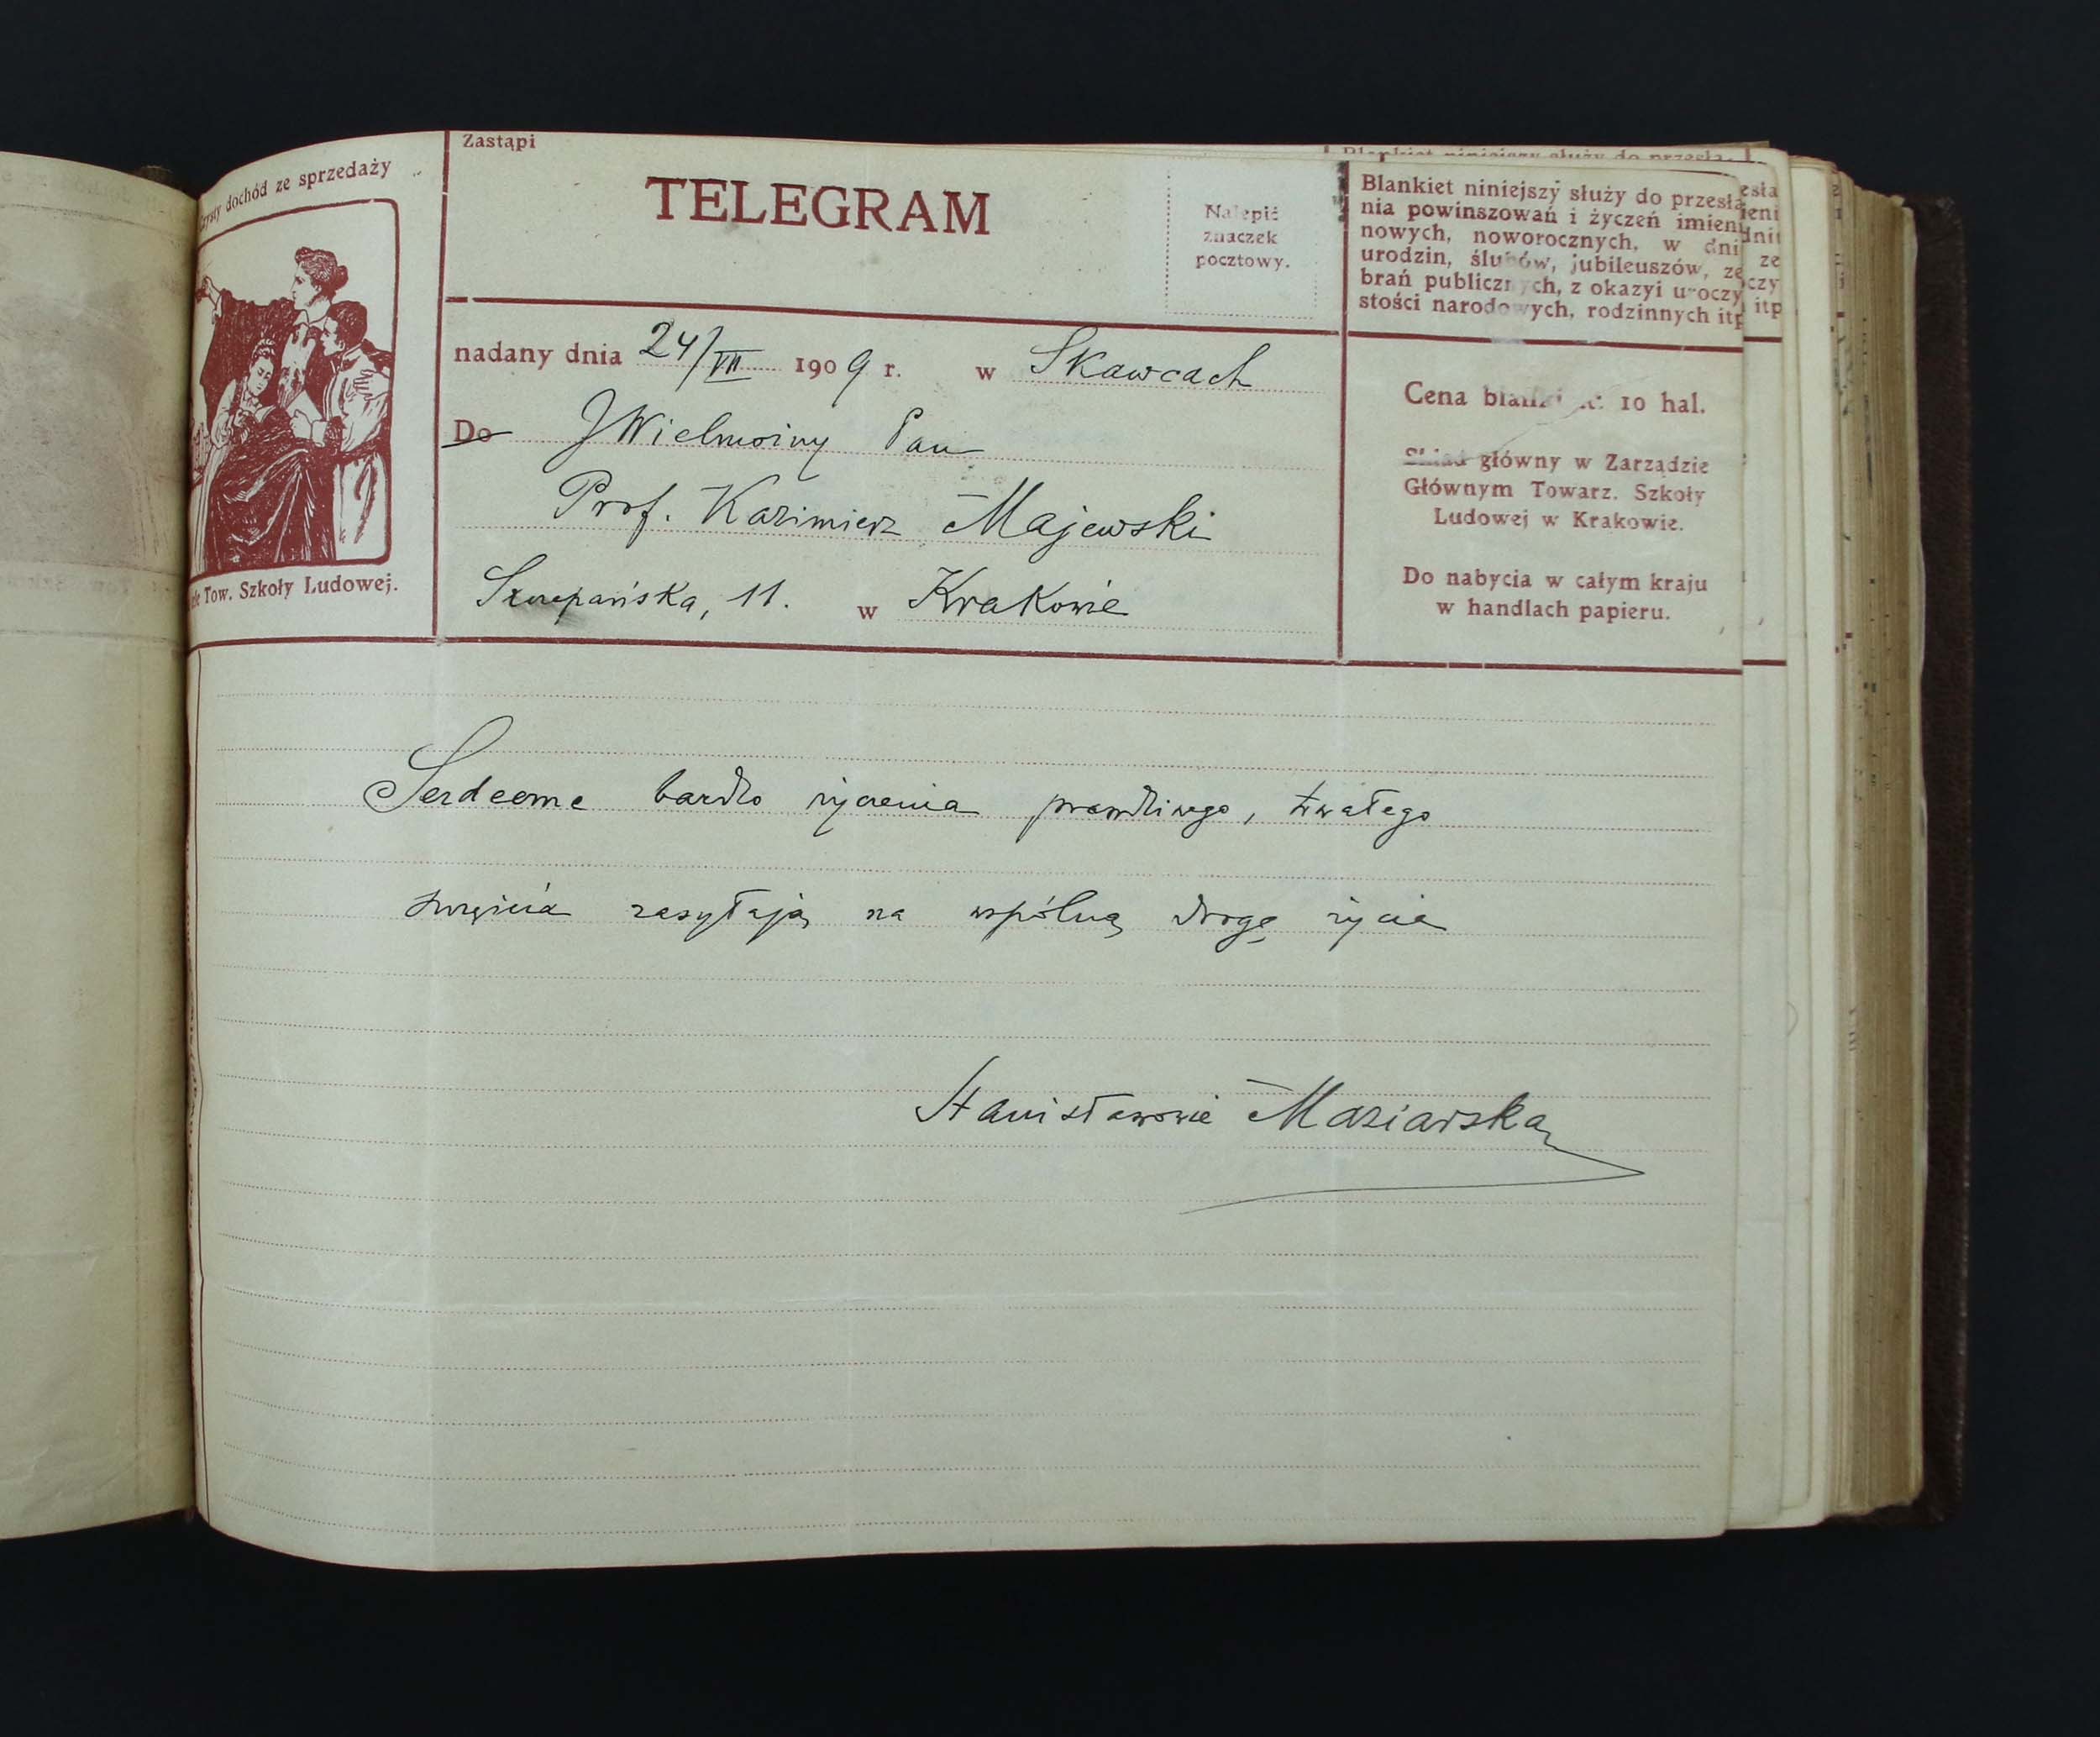 Zastąpi
czysty dochód ze sprzedaży
Tow. Szkoły Ludowej.
TELEGRAM
Nalepić
znaczek
pocztowy.
Blankiet niniejszy służy do przesła
nia powinszowań i życzeń imieni
nowych, noworocznych, w dni
urodzin, ślubów, jubileuszów, ze
brań publicznych, z okazyi uroczy
stości narodowych, rodzinnych itp
nadany dnia 24/VII 1909 r. w Skawcach
Do JWielmożny Pan
Prof. Kazimierz Majewski
Szczepańska, 11. w Krakowie
Cena blankietu 10 hal.
Skład główny w Zarządzie
Głównym Towarz. Szkoły
Ludowej w Krakowie.
Do nabycia w całym kraju
w handlach papieru.
Serdeczne bardzo życzenia prawdziwego, trwałego
szczęścia zasyłają na wspólną drogę życia
Stanisławowie Maziarską